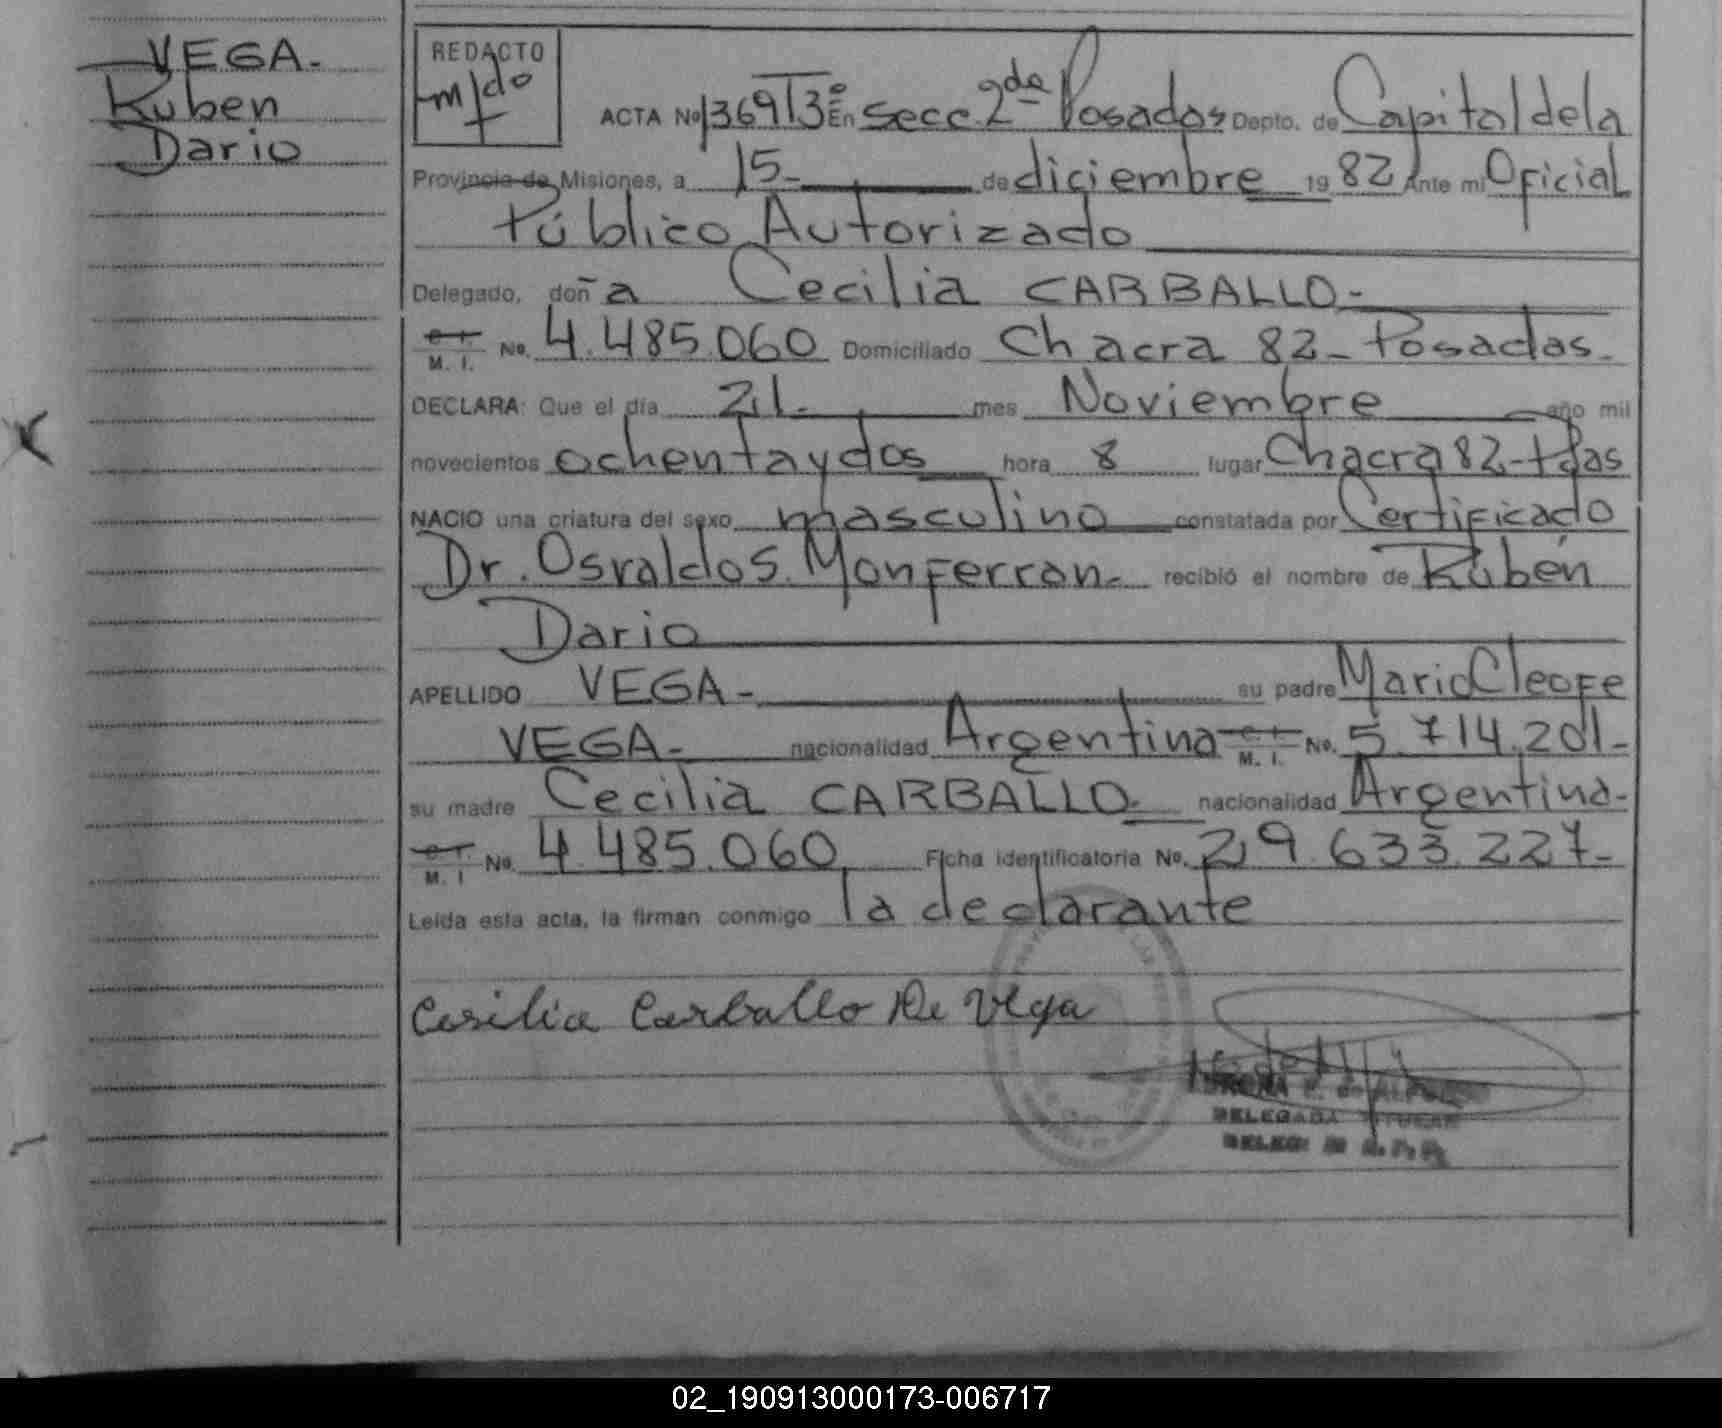 VEGA-
Ruben
Dario
REDACTO
m/do
ACTA No 3691 3º En Secc. 2da Posadas Depto. de Capital de la
Provincia de Misiones, a 15- de diciembre 1982 Ante mi Oficial
Público Autorizado
Delegado, doña Cecilia CARBALLO-
C. I.
M. I. No. 4.485.060 Domiciliado Chacra 82- Posadas-
DECLARA: Que el día 21- mes Noviembre año mil
novecientos ochentaydos hora 8 lugar Chacra 82-Pdas
NACIO una criatura del sexo masculino constatada por Certificado
Dr. Osvaldo S. Monferran- recibió el nombre de Rubén
Dario
APELLIDO VEGA- su padre Mario Cleofe
VEGA- nacionalidad Argentina C. I.
M. I. No. 5.714.201-
su madre Cecilia CARBALLO- nacionalidad Argentina-
C. I.
M. I No. 4.485.060 Ficha identificatoria No. 29.633.227-
Leída esta acta, la firman conmigo la declarante
Cesilia Carballo De Vega
DELEGADA TITULAR
02_190913000173-006717